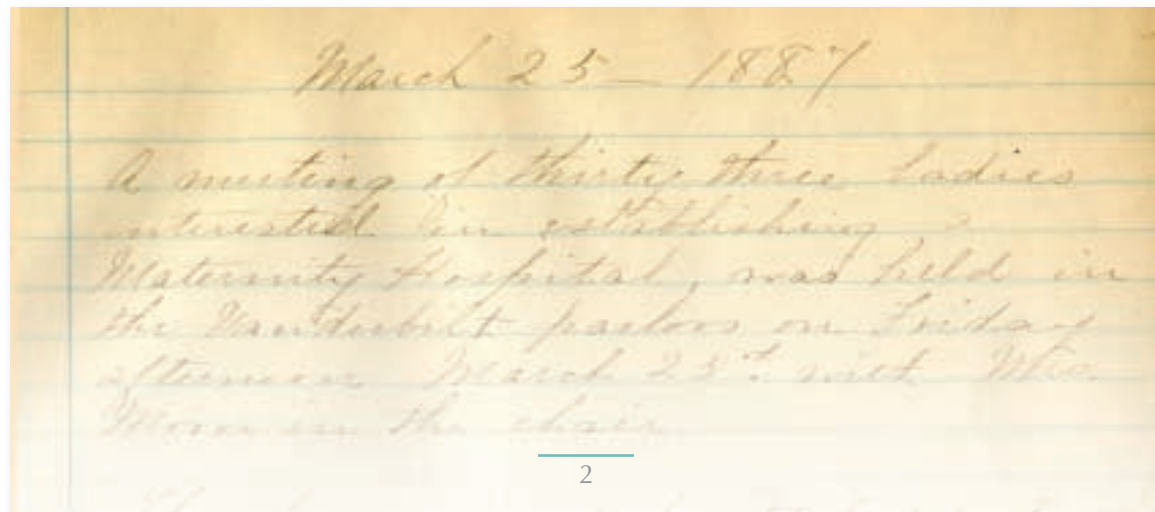 March 25 — 1887
A meeting of thirty three Ladies
interested in establishing a
Maternity Hospital, was held in
the Vanderbilt parlors on Friday
afternoon March 25th. with Mrs.
in the chair
2